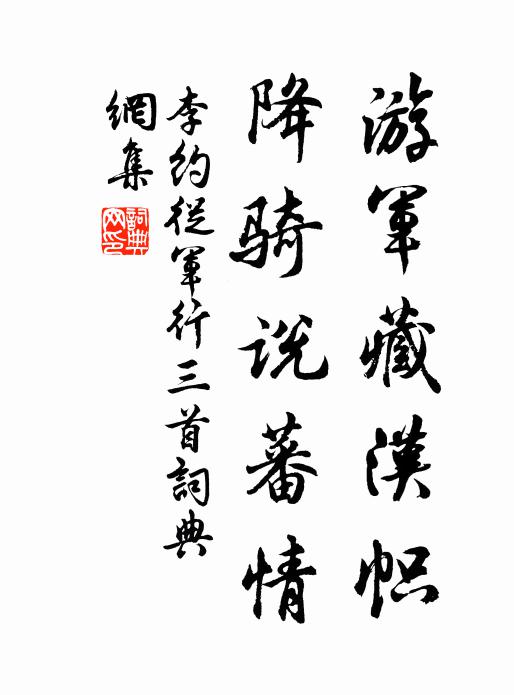 游軍藏漢帜
降騎説蕃情
李約從軍行三首詞典
網集
詞典網印